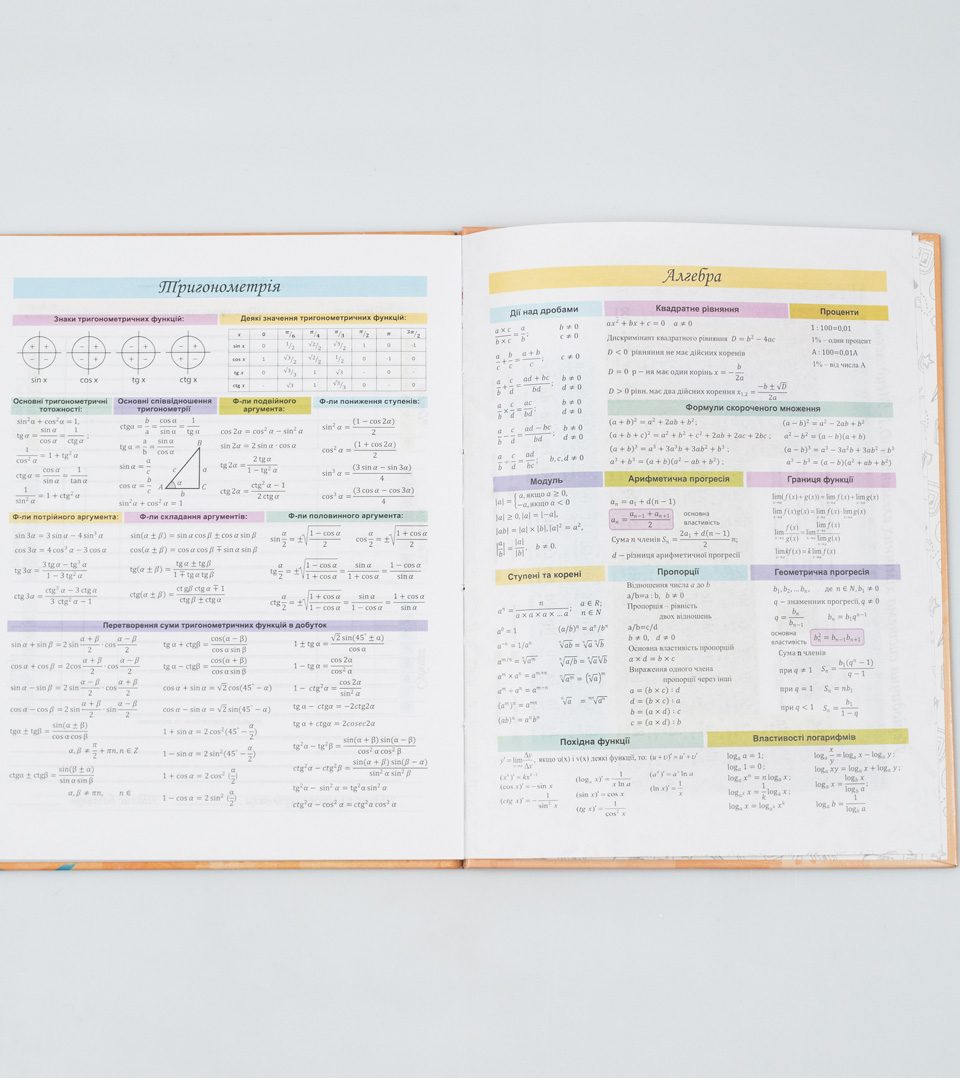 Тригонометрія
Знаки тригонометричних функцій:
sin x cos x tg x ctg x
Деякі значення тригонометричних функцій:
x 0 π/6 π/4 π/3 π/2 π 3π/2
sin x 0 1/2 √2/2 √3/2 1 0 -1
cos x 1 √3/2 √2/2 1/2 0 -1 0
tg x 0 √3/3 1 √3 - 0 -
ctg x - √3 1 √3/3 0 - 0
Основні тригонометричні
тотожності:
sin²α + cos²α = 1,
tg α = sin α/cos α = 1/ctg α ;
1/cos² α = 1 + tg² α
ctg α = cos α/sin α = 1/tan α
1/sin² α = 1 + ctg² α
Основні співвідношення
тригонометрії
ctgα = b/a = cos α/sin α = 1/tg α
tg α = a/b = sin α/cos α
sin α = a/c
cos α = b/c
B
c a
A α b C
sin²α + cos²α = 1
Ф-ли подвійного
аргумента:
cos 2α = cos² α − sin² α
sin 2α = 2 sin α · cos α
tg 2α = 2 tg α/1 − tg² α
ctg 2α = ctg² α − 1/2 ctg α
Ф-ли пониження ступенів:
sin² α = (1 − cos 2α)/2
cos² α = (1 + cos 2α)/2
sin³ α = (3 sin α − sin 3α)/4
cos³ α = (3 cos α − cos 3α)/4
Ф-ли потрійного аргумента:
sin 3α = 3 sin α − 4 sin³ α
cos 3α = 4 cos³ α − 3 cos α
tg 3α = 3 tg α − tg³ α/1 − 3 tg² α
ctg 3α = ctg³ α − 3 ctg α/3 ctg² α − 1
Ф-ли складання аргументів:
sin(α ± β) = sin α cos β ± cos α sin β
cos(α ± β) = cos α cos β ∓ sin α sin β
tg(α ± β) = tg α ± tg β/1 ∓ tg α tg β
ctg(α ± β) = ctg α ctg β ∓ 1/ctg β ± ctg α
Ф-ли половинного аргумента:
sin α/2 = ±√1 − cos α/2 cos α/2 = ±√1 + cos α/2
tg α/2 = ±√1 − cos α/1 + cos α = sin α/1 + cos α = 1 − cos α/sin α
ctg α/2 = ±√1 + cos α/1 − cos α = sin α/1 − cos α = 1 + cos α/sin α
Перетворення суми тригонометричних функцій в добуток
sin α + sin β = 2 sin α + β/2 · cos α − β/2
cos α + cos β = 2cos α + β/2 · cos α − β/2
sin α − sin β = 2 sin α − β/2 · cos α + β/2
cos α − cos β = 2 sin α + β/2 · sin α − β/2
tgα ± tgβ = sin(α ± β)/cos α cos β
α, β ≠ π/2 + πn, n ∈ Z
ctgα ± ctgβ = sin(β ± α)/sin α sin β
α, β ≠ πn, n ∈
tg α + ctgβ = cos(α − β)/cos α sin β
tg α − ctgβ = cos(α + β)/cos α sin β
cos α + sin α = √2 cos(45° − α)
cos α − sin α = √2 sin(45° − α)
1 + sin α = 2 cos² (45° − α/2)
1 − sin α = 2 sin² (45° − α/2)
1 + cos α = 2 cos² (α/2)
1 − cos α = 2 sin² (α/2)
1 ± tg α = √2 sin(45° ± α)/cos α
1 − tg α = cos 2α/cos² α
1 − ctg²α = cos 2α/sin² α
tg α − ctg α = −2ctg2α
tg α + ctgα = 2cosec2α
tg²α − tg²β = sin(α + β) sin(α − β)/cos² α cos² β
ctg²α − ctg²β = sin(α + β) sin(β − α)/sin² α sin² β
tg²α − sin² α = tg²α sin² α
ctg²α − cos² α = ctg²α cos² α
Алгебра
Дії над дробами
a × c/b × c = a/b ; b ≠ 0 c ≠ 0
a/c + b/c = a + b/c ; c ≠ 0
a/b + c/d = ad + bc/bd ; b ≠ 0 d ≠ 0
a/b × c/d = ac/bd ; b ≠ 0 d ≠ 0
a/b − c/d = ad − bc/bd ; b ≠ 0 d ≠ 0
a/b ÷ c/d = ad/bc ; b, c, d ≠ 0
Квадратне рівняння
ax² + bx + c = 0 a ≠ 0
Дискримінант квадратного рівняння D = b² − 4ac
D < 0 рівняння не має дійсних коренів
D = 0 р − ня має один корінь x = − b/2a
D > 0 рівн. має два дійсних корення x₁,₂ = −b ± √D/2a
Проценти
1 : 100=0,01
1% − один процент
A : 100=0,01A
1% − від числа A
Формули скороченого множення
(a + b)² = a² + 2ab + b²; (a − b)² = a² − 2ab + b²
(a + b + c)² = a² + b² + c² + 2ab + 2ac + 2bc ; a² − b² = (a − b)(a + b)
(a + b)³ = a³ + 3a²b + 3ab² + b³ ; (a − b)³ = a³ − 3a²b + 3ab² − b³
a³ + b³ = (a + b)(a² − ab + b²) ; a³ − b³ = (a − b)(a² + ab + b²)
Модуль
|a| = { a, якщо a ≥ 0,
−a, якщо a < 0
|a| ≥ 0, |a| = |−a|,
|ab| = |a| × |b|, |a|² = a²,
|a/b| = |a|/|b|, b ≠ 0.
Арифметична прогресія
aₙ = a₁ + d(n − 1)
aₙ = aₙ₋₁ + aₙ₊₁/2 основна
властивість
Сума n членів Sₙ = 2a₁ + d(n − 1)/2 n;
d − різниця арифметичної прогресії
Границя функції
lim(f(x) + g(x)) = lim f(x) + lim g(x)
lim f(x)g(x) = lim f(x) · lim g(x)
lim f(x)/g(x) = lim f(x)/lim g(x)
lim kf(x) = k lim f(x)
Ступені та корені
aⁿ = n/a × a × a × ... a ; a ∈ R; n ∈ N
a⁰ = 1 (a/b)ⁿ = aⁿ/bⁿ
a⁻ⁿ = 1/aⁿ ⁿ√ab = ⁿ√a ⁿ√b
aᵐ/ⁿ = ⁿ√aᵐ ⁿ√a/b = ⁿ√a ⁿ√b
aᵐ × aⁿ = aᵐ⁺ⁿ ⁿ√aᵐ = (ⁿ√a)ᵐ
aᵐ ÷ aⁿ = aᵐ⁻ⁿ
(aᵐ)ⁿ = aᵐⁿ
(ab)ⁿ = aⁿbⁿ
Пропорції
Відношення числа a до b
a/b=a : b, b ≠ 0
Пропорція − рівність
двох відношень
a/b=c/d
b ≠ 0, d ≠ 0
Основна властивість пропорцій
a × d = b × c
Вираження одного члена
пропорції через інші
a = (b × c) : d
d = (b × c) : a
b = (a × d) : c
c = (a × d) : b
Геометрична прогресія
b₁, b₂, ... bₙ, де n ∈ N, b₁ ≠ 0
q − знаменник прогресії, q ≠ 0
q = bₙ/bₙ₋₁ bₙ = b₁qⁿ⁻¹
основна
властивість bₙ² = bₙ₋₁bₙ₊₁
Сума n членів
при q ≠ 1 Sₙ = b₁(qⁿ − 1)/q − 1
при q = 1 Sₙ = nb₁
при q < 1 Sₙ = b₁/1 − q
Похідна функції
y' = lim Δy/Δx , якщо u(x) і v(x) деякі функції, то: (u + υ)' = u' + υ'
(xᵏ)' = kxᵏ⁻¹
(cos x)' = − sin x
(ctg x)' = − 1/sin² x
(logₐ x)' = 1/x ln a
(sin x)' = cos x
(tg x)' = 1/cos² x
(aˣ)' = aˣ ln a
(ln x)' = 1/x
Властивості логарифмів
logₐ a = 1;
logₐ 1 = 0;
logₐ xⁿ = n logₐ x;
logₐᵏ x = 1/k logₐ x ;
logₐ x = logₐᵏ xᵏ
logₐ x/y = logₐ x − logₐ y ;
logₐ xy = logₐ x + logₐ y ;
logₐ x = log_b x/log_b a ;
logₐ b = 1/log_b a